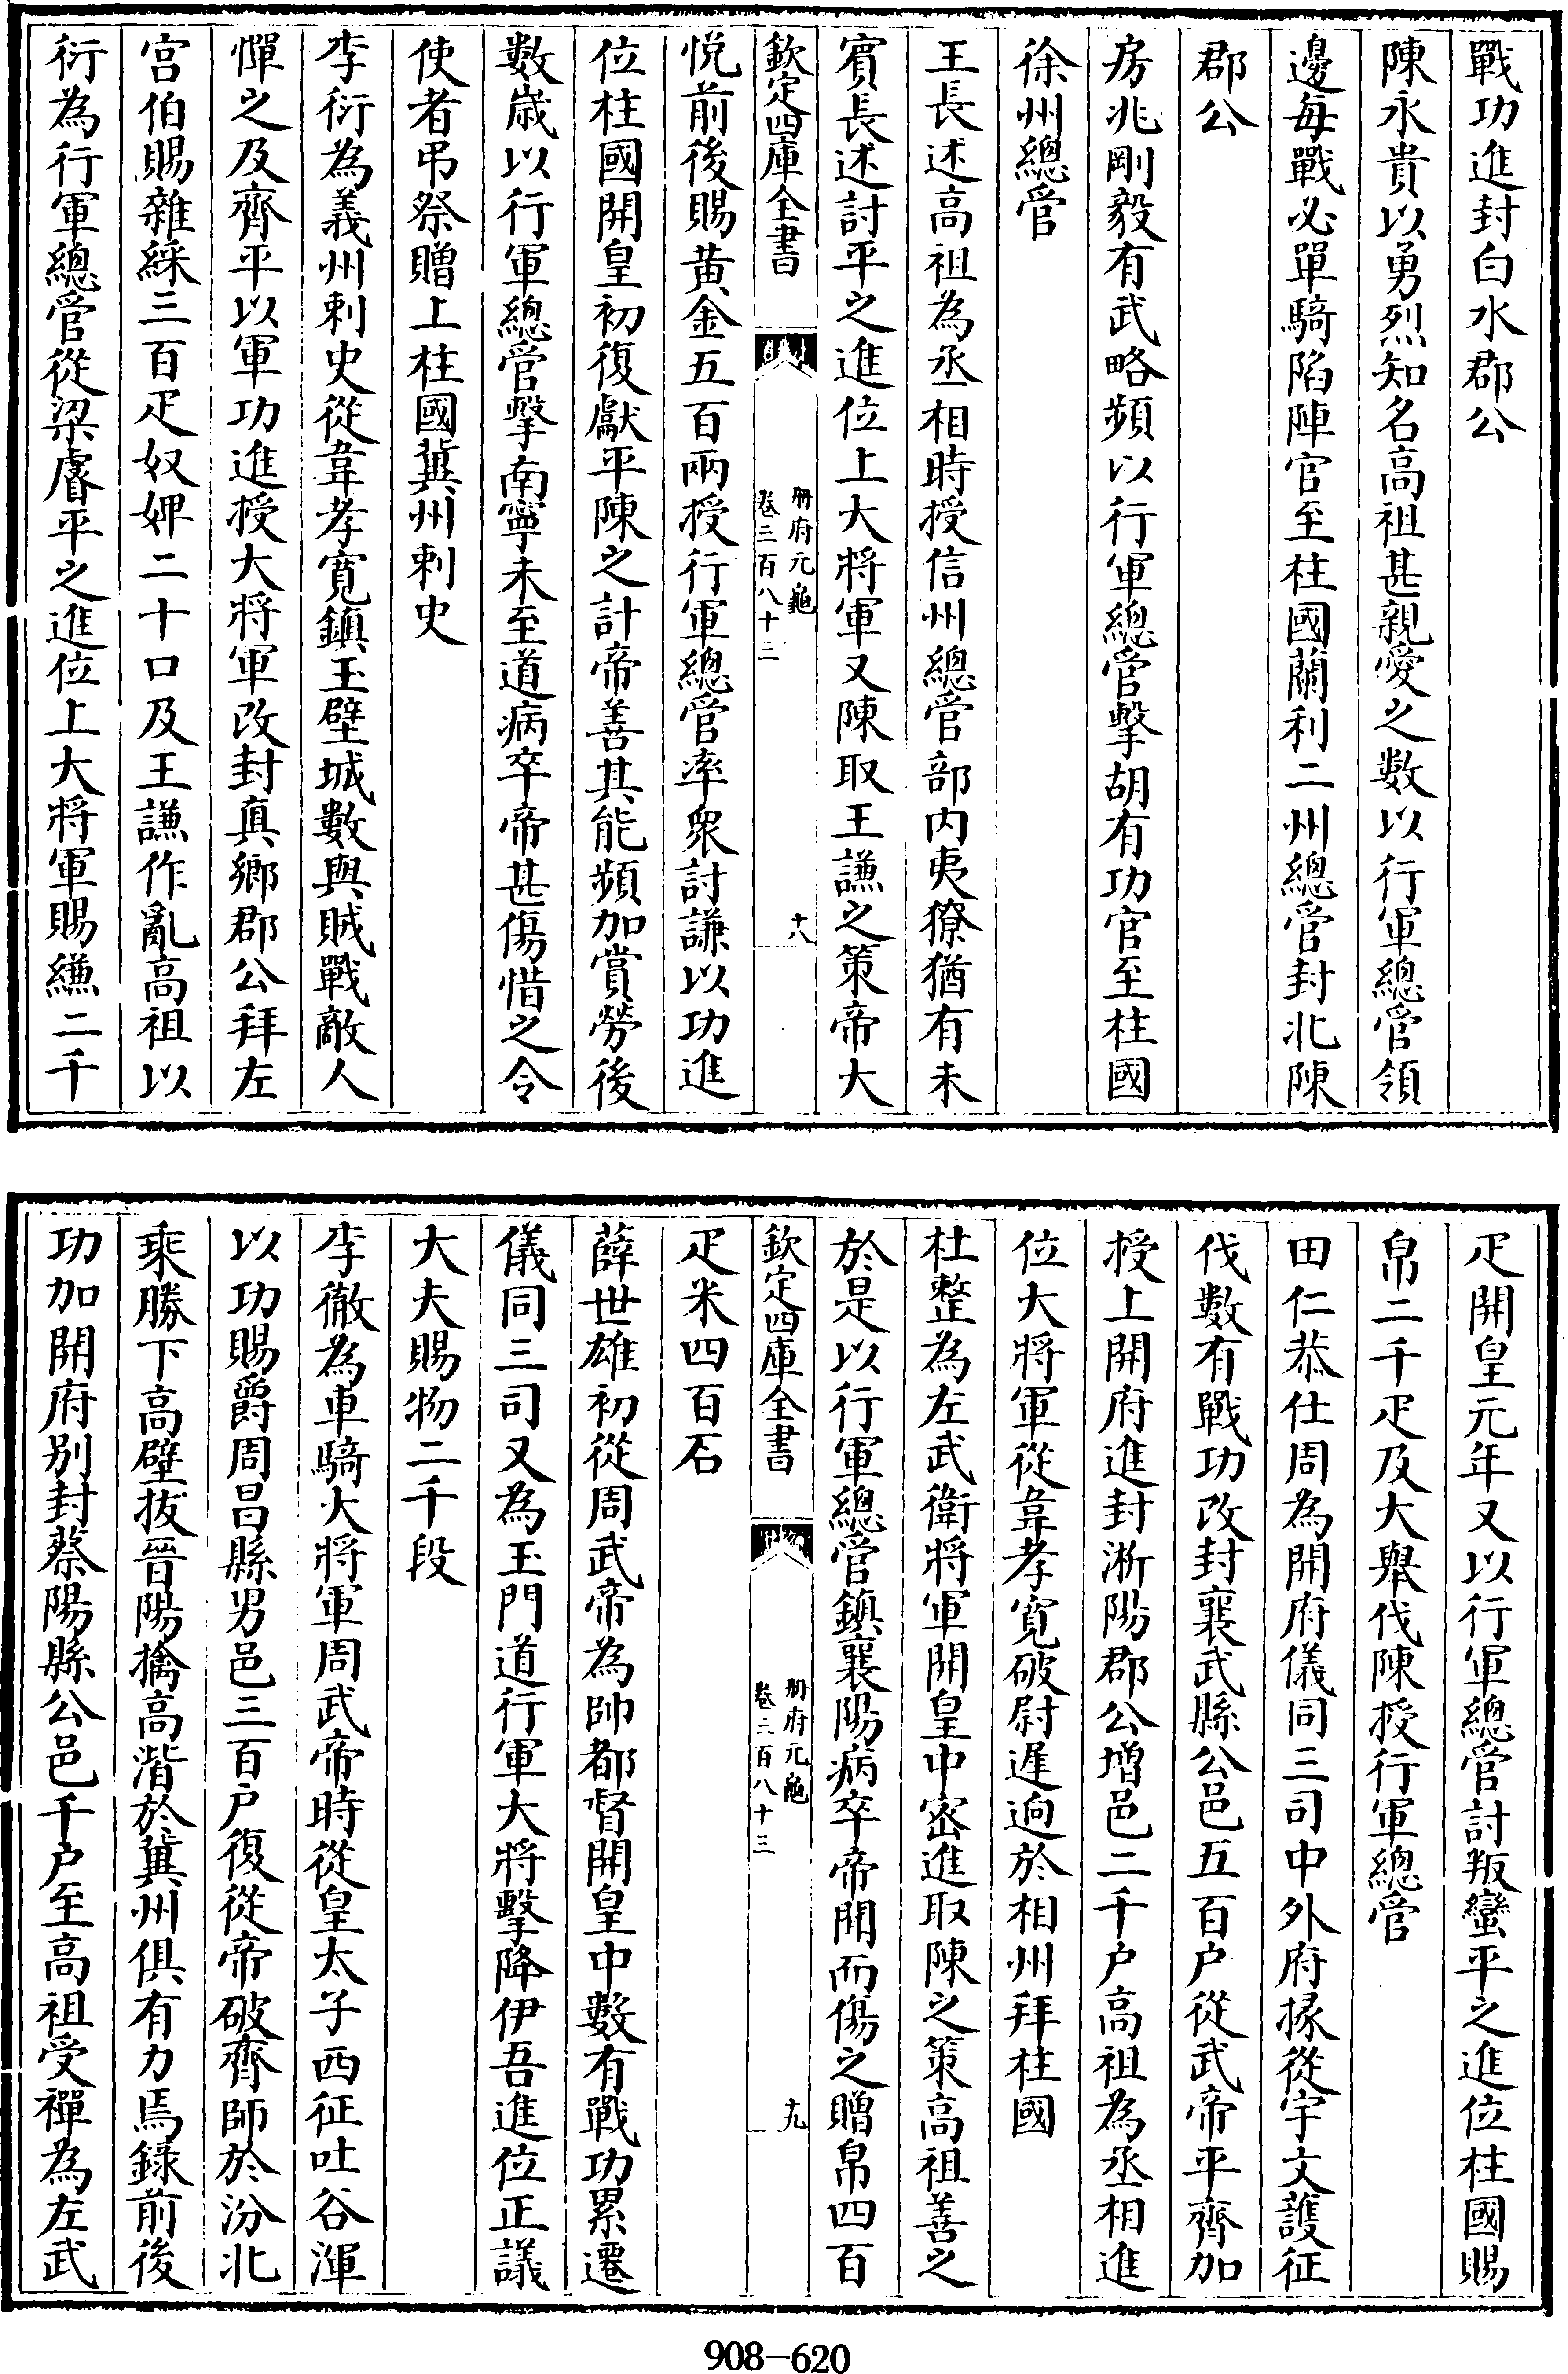 戰功進封白水郡公
陳永貴以勇烈知名高祖甚親愛之數以行軍總管領
邊每戰必單騎陷陣官至柱國蘭利二州總管封北陳
郡公
房兆剛毅有武略頻以行軍總管擊胡有功官至柱國
徐州總管
王長述高祖為丞相時授信州總管部内夷獠猶有未
賓長述討平之進位上大將軍又陳取王謙之策帝大
欽定四庫全書
册府元龜
卷三百八十三
十八
悦前後賜黄金五百兩授行軍總管率衆討謙以功進
位柱國開皇初復獻平陳之計帝善其能頻加賞勞後
數歳以行軍總管擊南寧未至道病卒帝甚傷惜之令
使者弔祭贈上柱國冀州刺史
李衍為義州刺史從韋孝寛鎮玉壁城數與賊戰敵人
憚之及齊平以軍功進授大將軍改封真鄉郡公拜左
宫伯賜雜綵三百疋奴婢二十口及王謙作亂高祖以
衍為行軍總管從梁睿平之進位上大將軍賜縑二千
疋開皇元年又以行軍總管討叛蠻平之進位柱國賜
帛二千疋及大舉伐陳授行軍總管
田仁恭仕周為開府儀同三司中外府掾從宇文護征
伐數有戰功改封襄武縣公邑五百户從武帝平齊加
授上開府進封淅陽郡公增邑二千户高祖為丞相進
位大將軍從韋孝寛破尉遲迥於相州拜柱國
杜整為左武衛將軍開皇中密進取陳之策高祖善之
於是以行軍總管鎮襄陽病卒帝聞而傷之贈帛四百
欽定四庫全書
册府元龜
卷三百八十三
十九
疋米四百石
薛世雄初從周武帝為帥都督開皇中數有戰功累遷
儀同三司又為玉門道行軍大將擊降伊吾進位正議
大夫賜物二千段
李徹為車騎大將軍周武帝時從皇太子西征吐谷渾
以功賜爵周昌縣男邑三百户復從帝破齊師於汾北
乘勝下高壁抜晉陽擒高湝於冀州俱有力焉録前後
功加開府别封蔡陽縣公邑千户至高祖受禪為左武
908-620